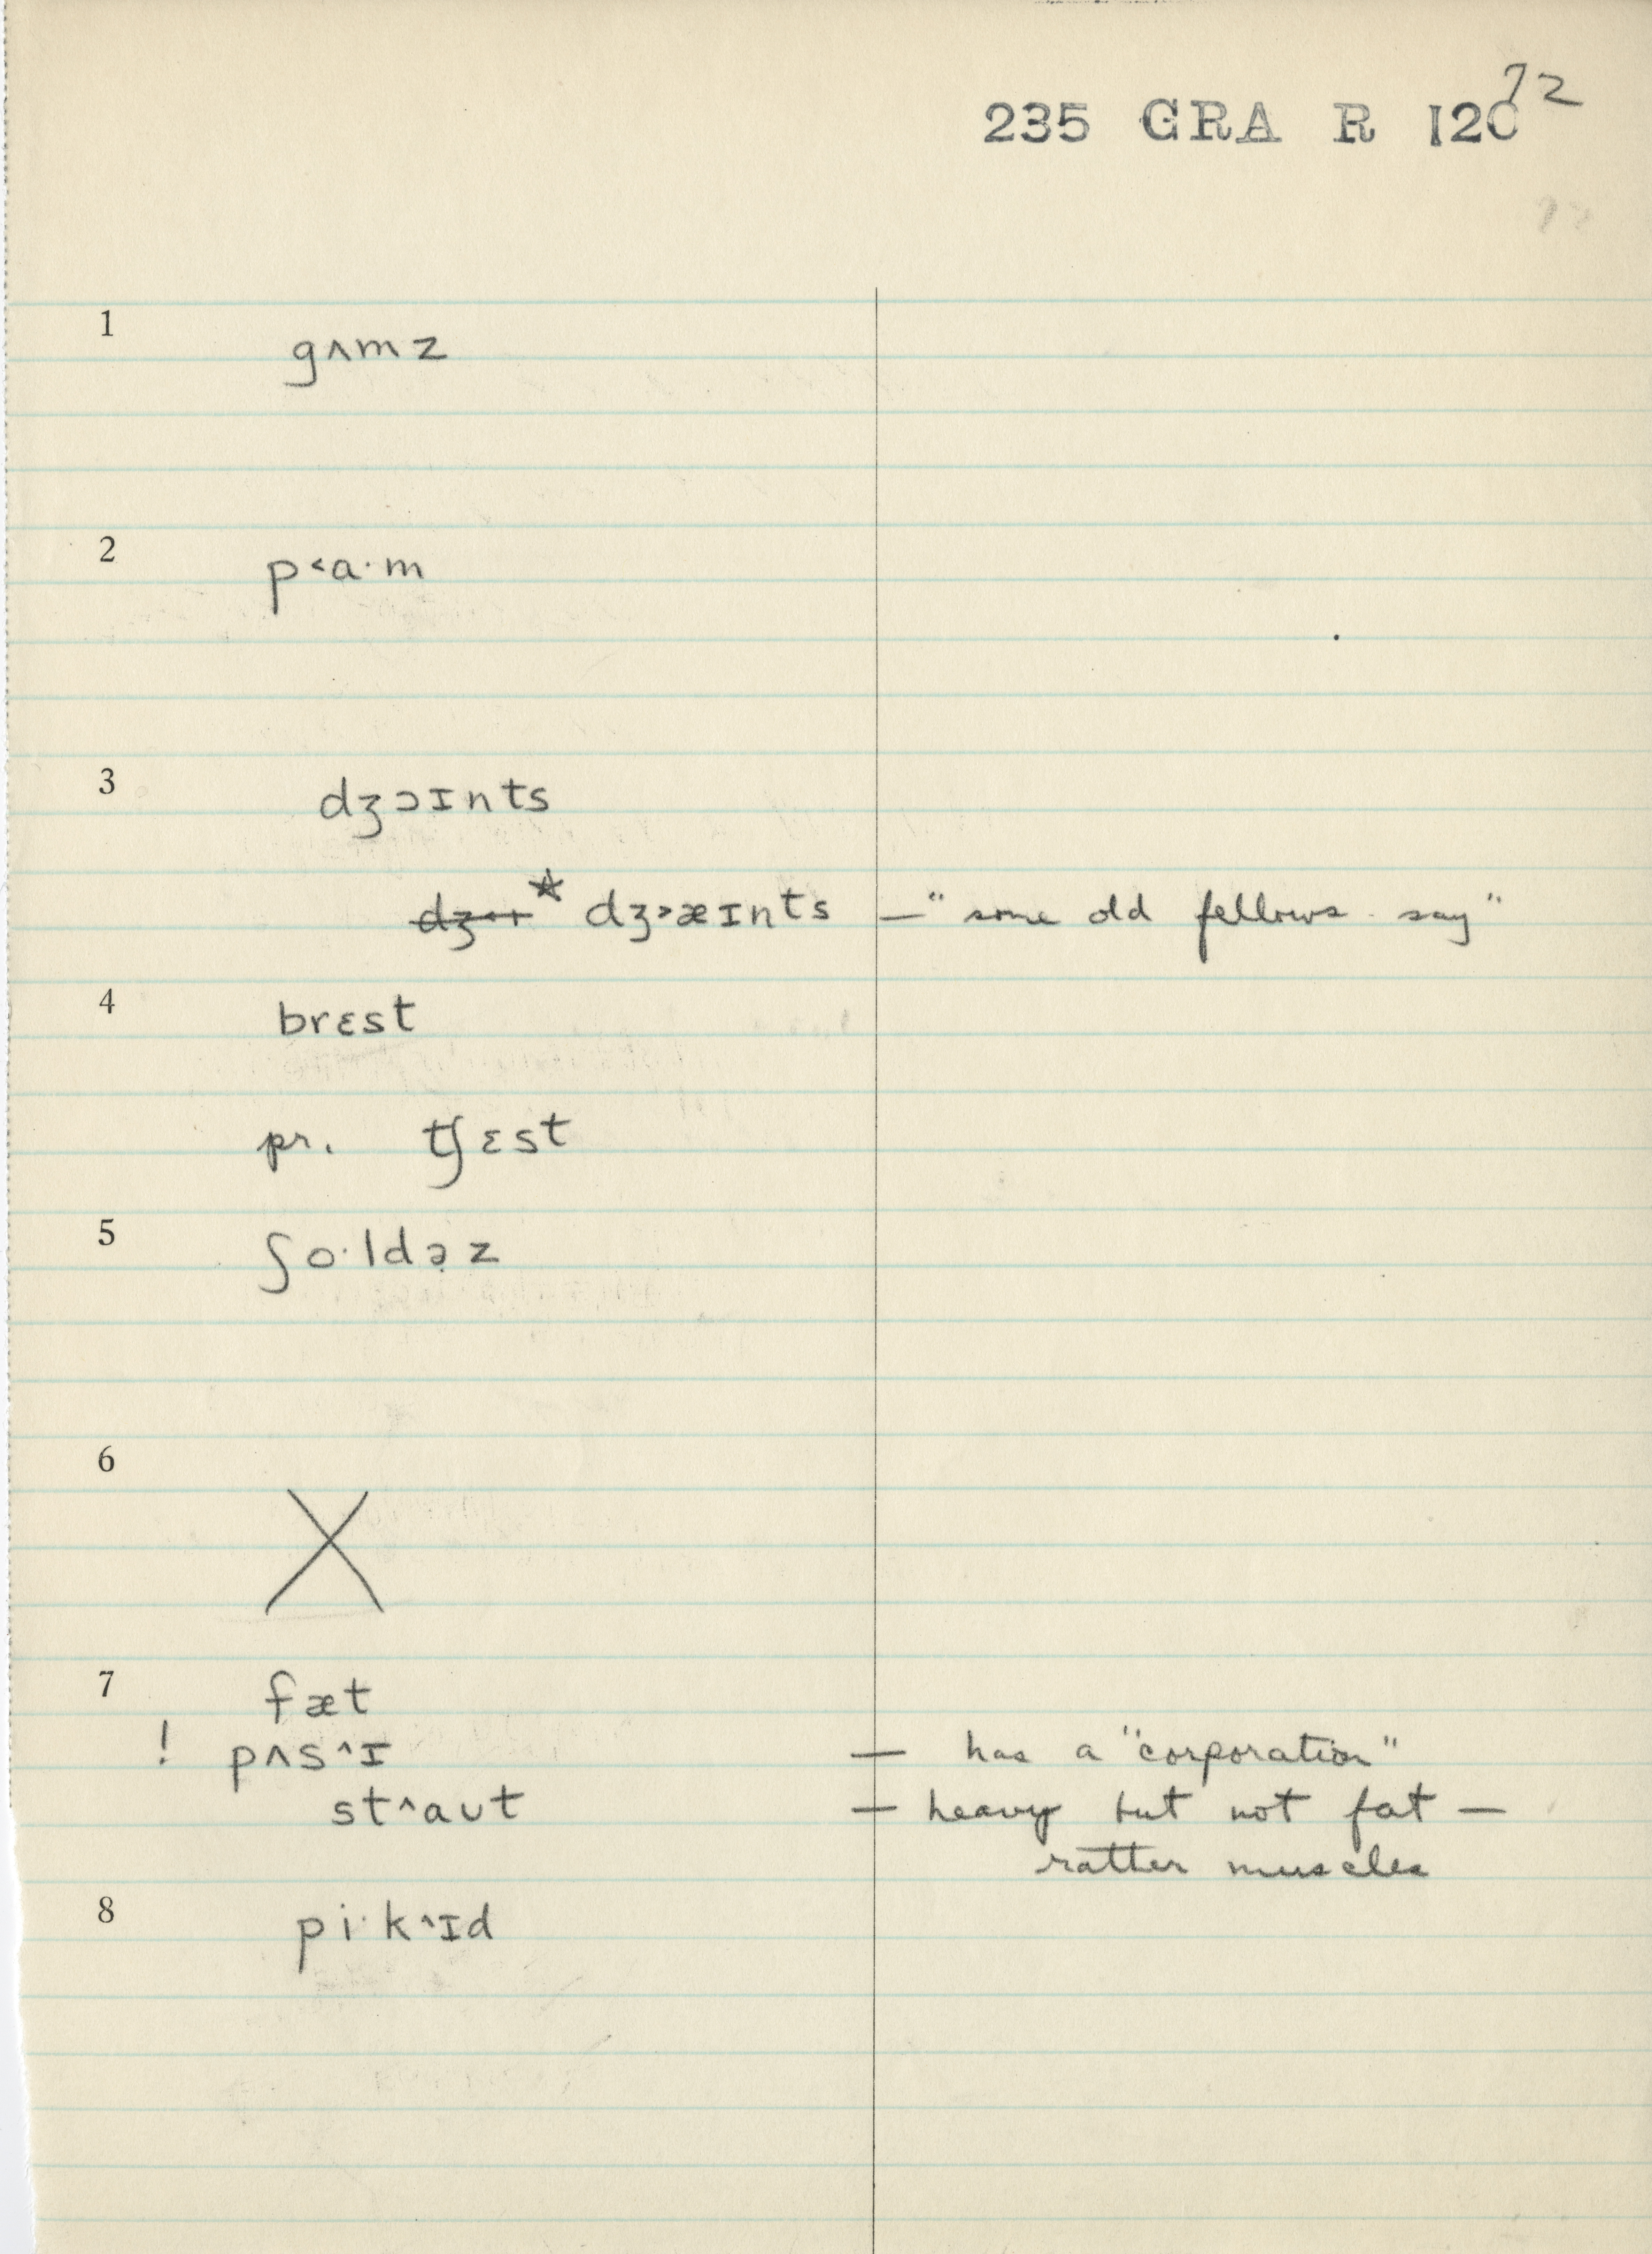 72
235 GRA R 120
1 gʌmz
2 p˂a·m
3 dʒɔɪnts
* dʒ˃æɪnts — "some old fellows say"
4 brɛst
pr. tʃɛst
5 ʃo·ldə̣z
6 X
7 fæt
! pʌs^ɪ — has a "corporation"
st^aʊt — heavy but not fat —
rather muscles
8 pi·k^ɪd